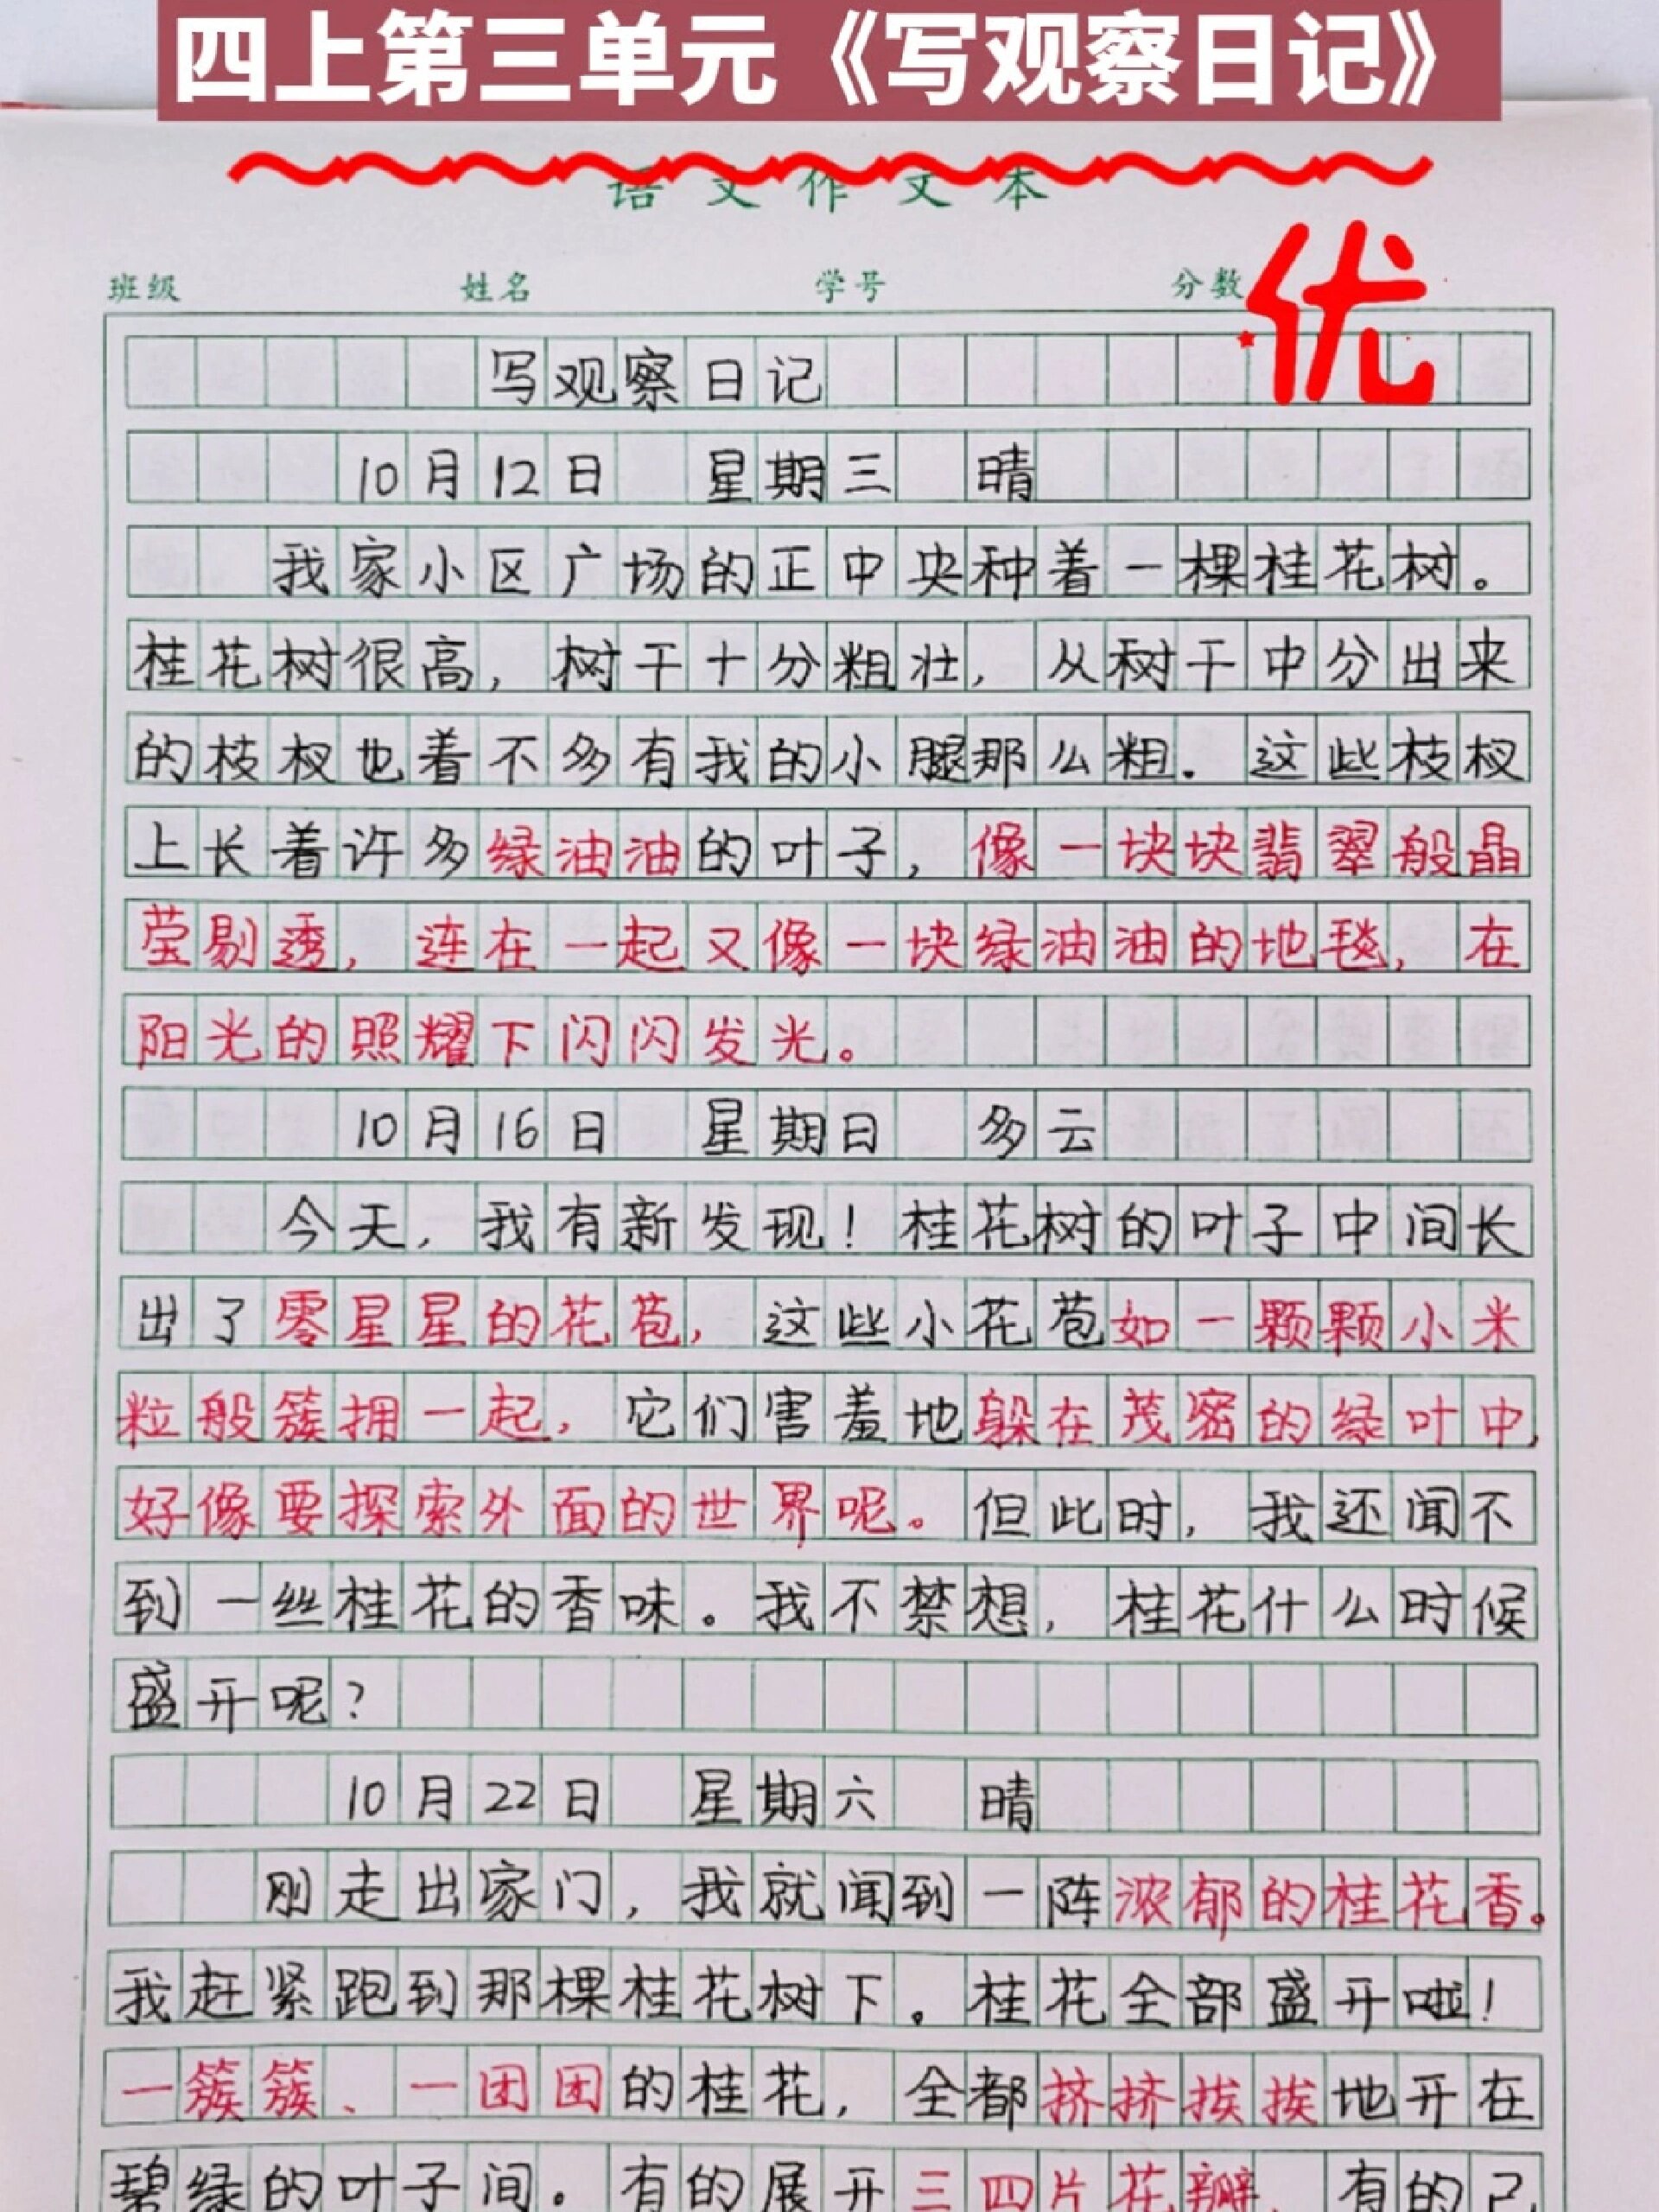 四上第三单元《写观察日记》
语文作文本
优
班级 姓名 学号 分数
写观察日记
10月12日 星期三 晴
我家小区广场的正中央种着一棵桂花树。
桂花树很高，树干十分粗壮，从树干中分出来
的枝杈也着不多有我的小腿那么粗。这些枝杈
上长着许多绿油油的叶子，像一块块翡翠般晶
莹剔透，连在一起又像一块绿油油的地毯，在
阳光的照耀下闪闪发光。
10月16日 星期日 多云
今天，我有新发现！桂花树的叶子中间长
出了零星星的花苞，这些小花苞如一颗颗小米
粒般簇拥一起，它们害羞地躲在茂密的绿叶中，
好像要探索外面的世界呢。但此时，我还闻不
到一丝桂花的香味。我不禁想，桂花什么时候
盛开呢？
10月22日 星期六 晴
刚走出家门，我就闻到一阵浓郁的桂花香。
我赶紧跑到那棵桂花树下。桂花全部盛开啦！
一簇簇、一团团的桂花，全都挤挤挨挨地开在
碧绿的叶子间。有的展开三四片花瓣，有的已